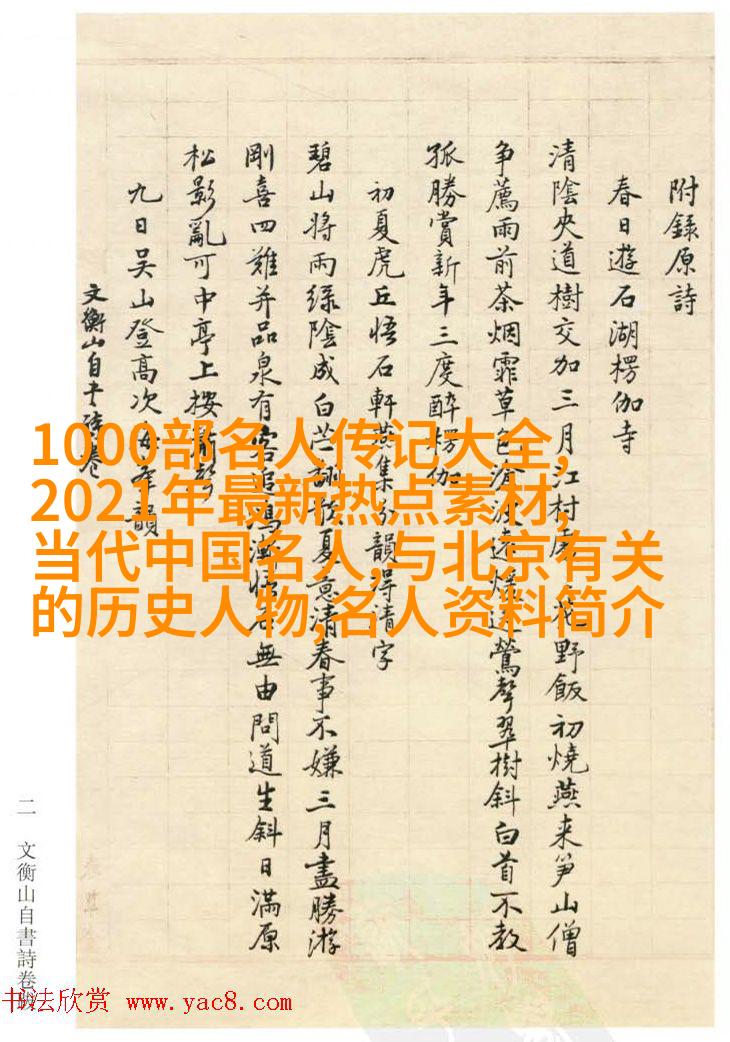 附錄原詩
春日遊石湖楞伽寺
清陰央道樹交加三月江村花野飯初燒燕来笋山僧
争薦雨前茶烟霏草色遠鶯聲翠樹斜白首不教
孤勝賞新年三度醉楞伽
初夏虎丘悟石軒燕集分韻得清字
碧山將雨綠陰成白苎夏意清春事不嫌三月盡勝游
剛喜四難并品泉有客追鴻漸悟石無由問道生斜日滿原
松影亂可中亭上按新聲
九日吴山登高次韻
文衡山自卷
二 文衡山自書詩卷跋
1000部名人传记大全,
2021年最新热点素材,
当代中国名人,与北京有关
的历史人物,名人资料简介
书法欣赏 www.yac8.com